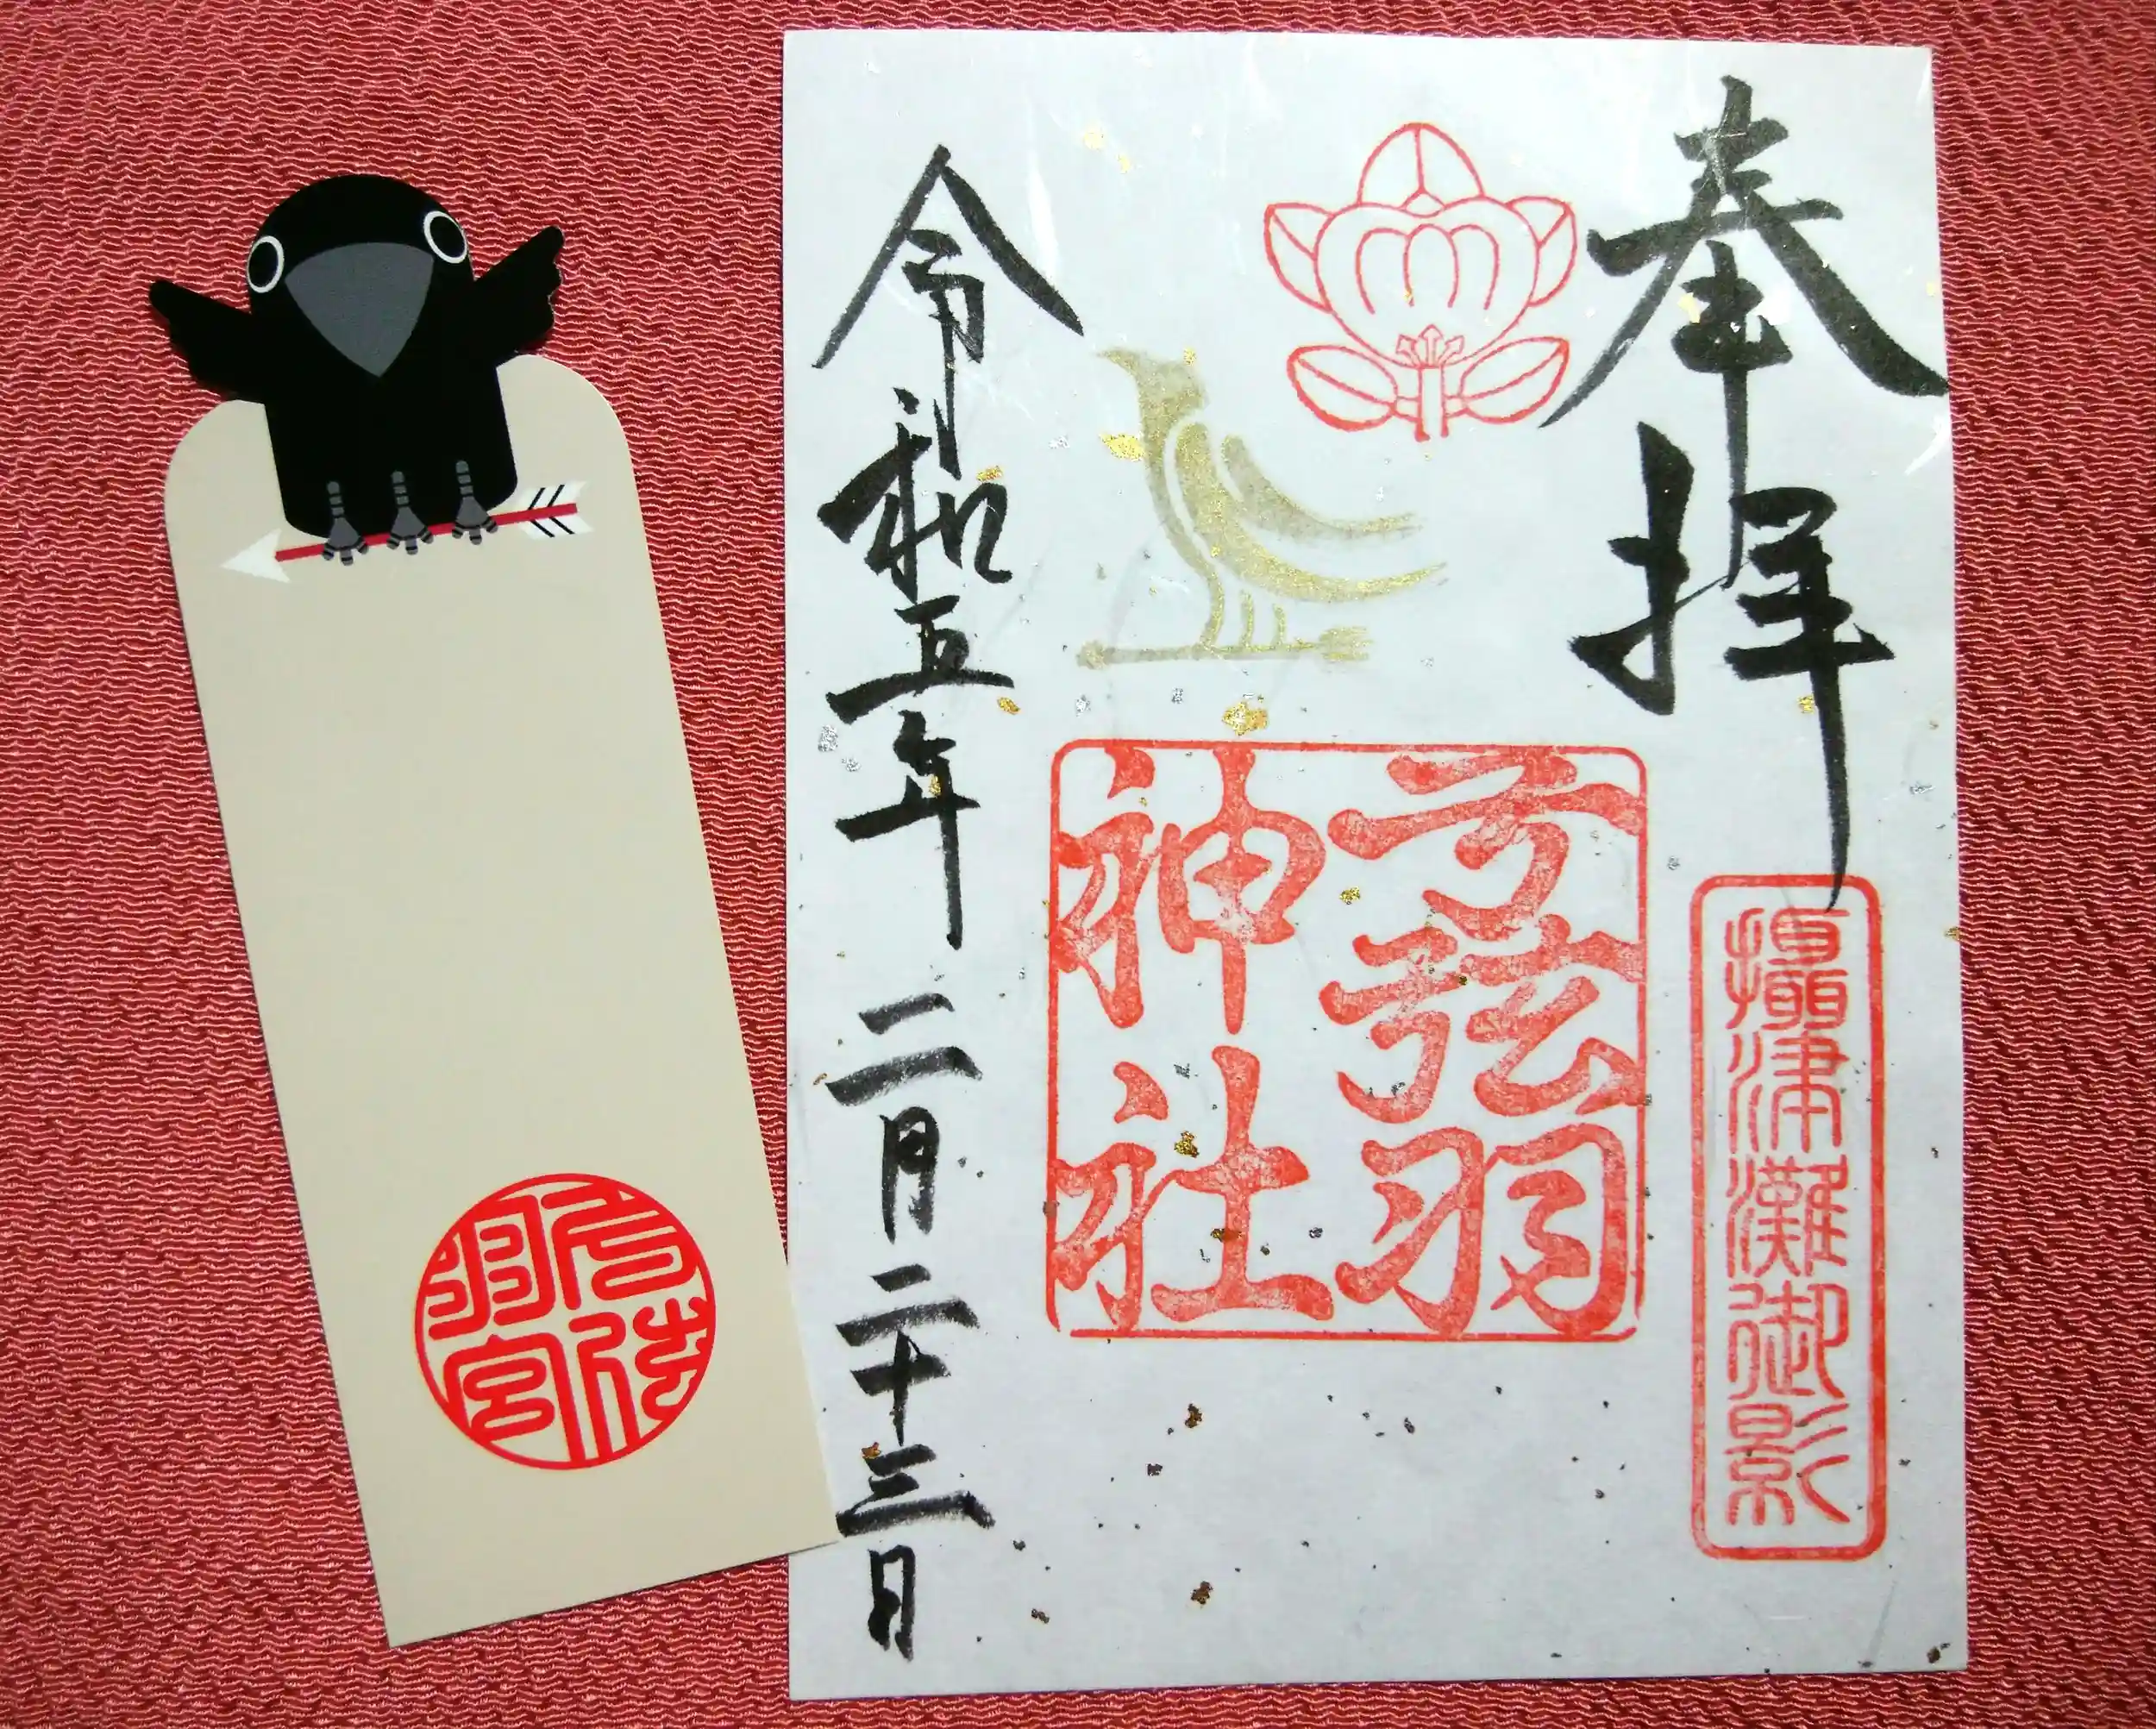 奉拝
摂津灘御影
弓弦羽
神社
令和五年二月二十三日
弓弦
羽宮